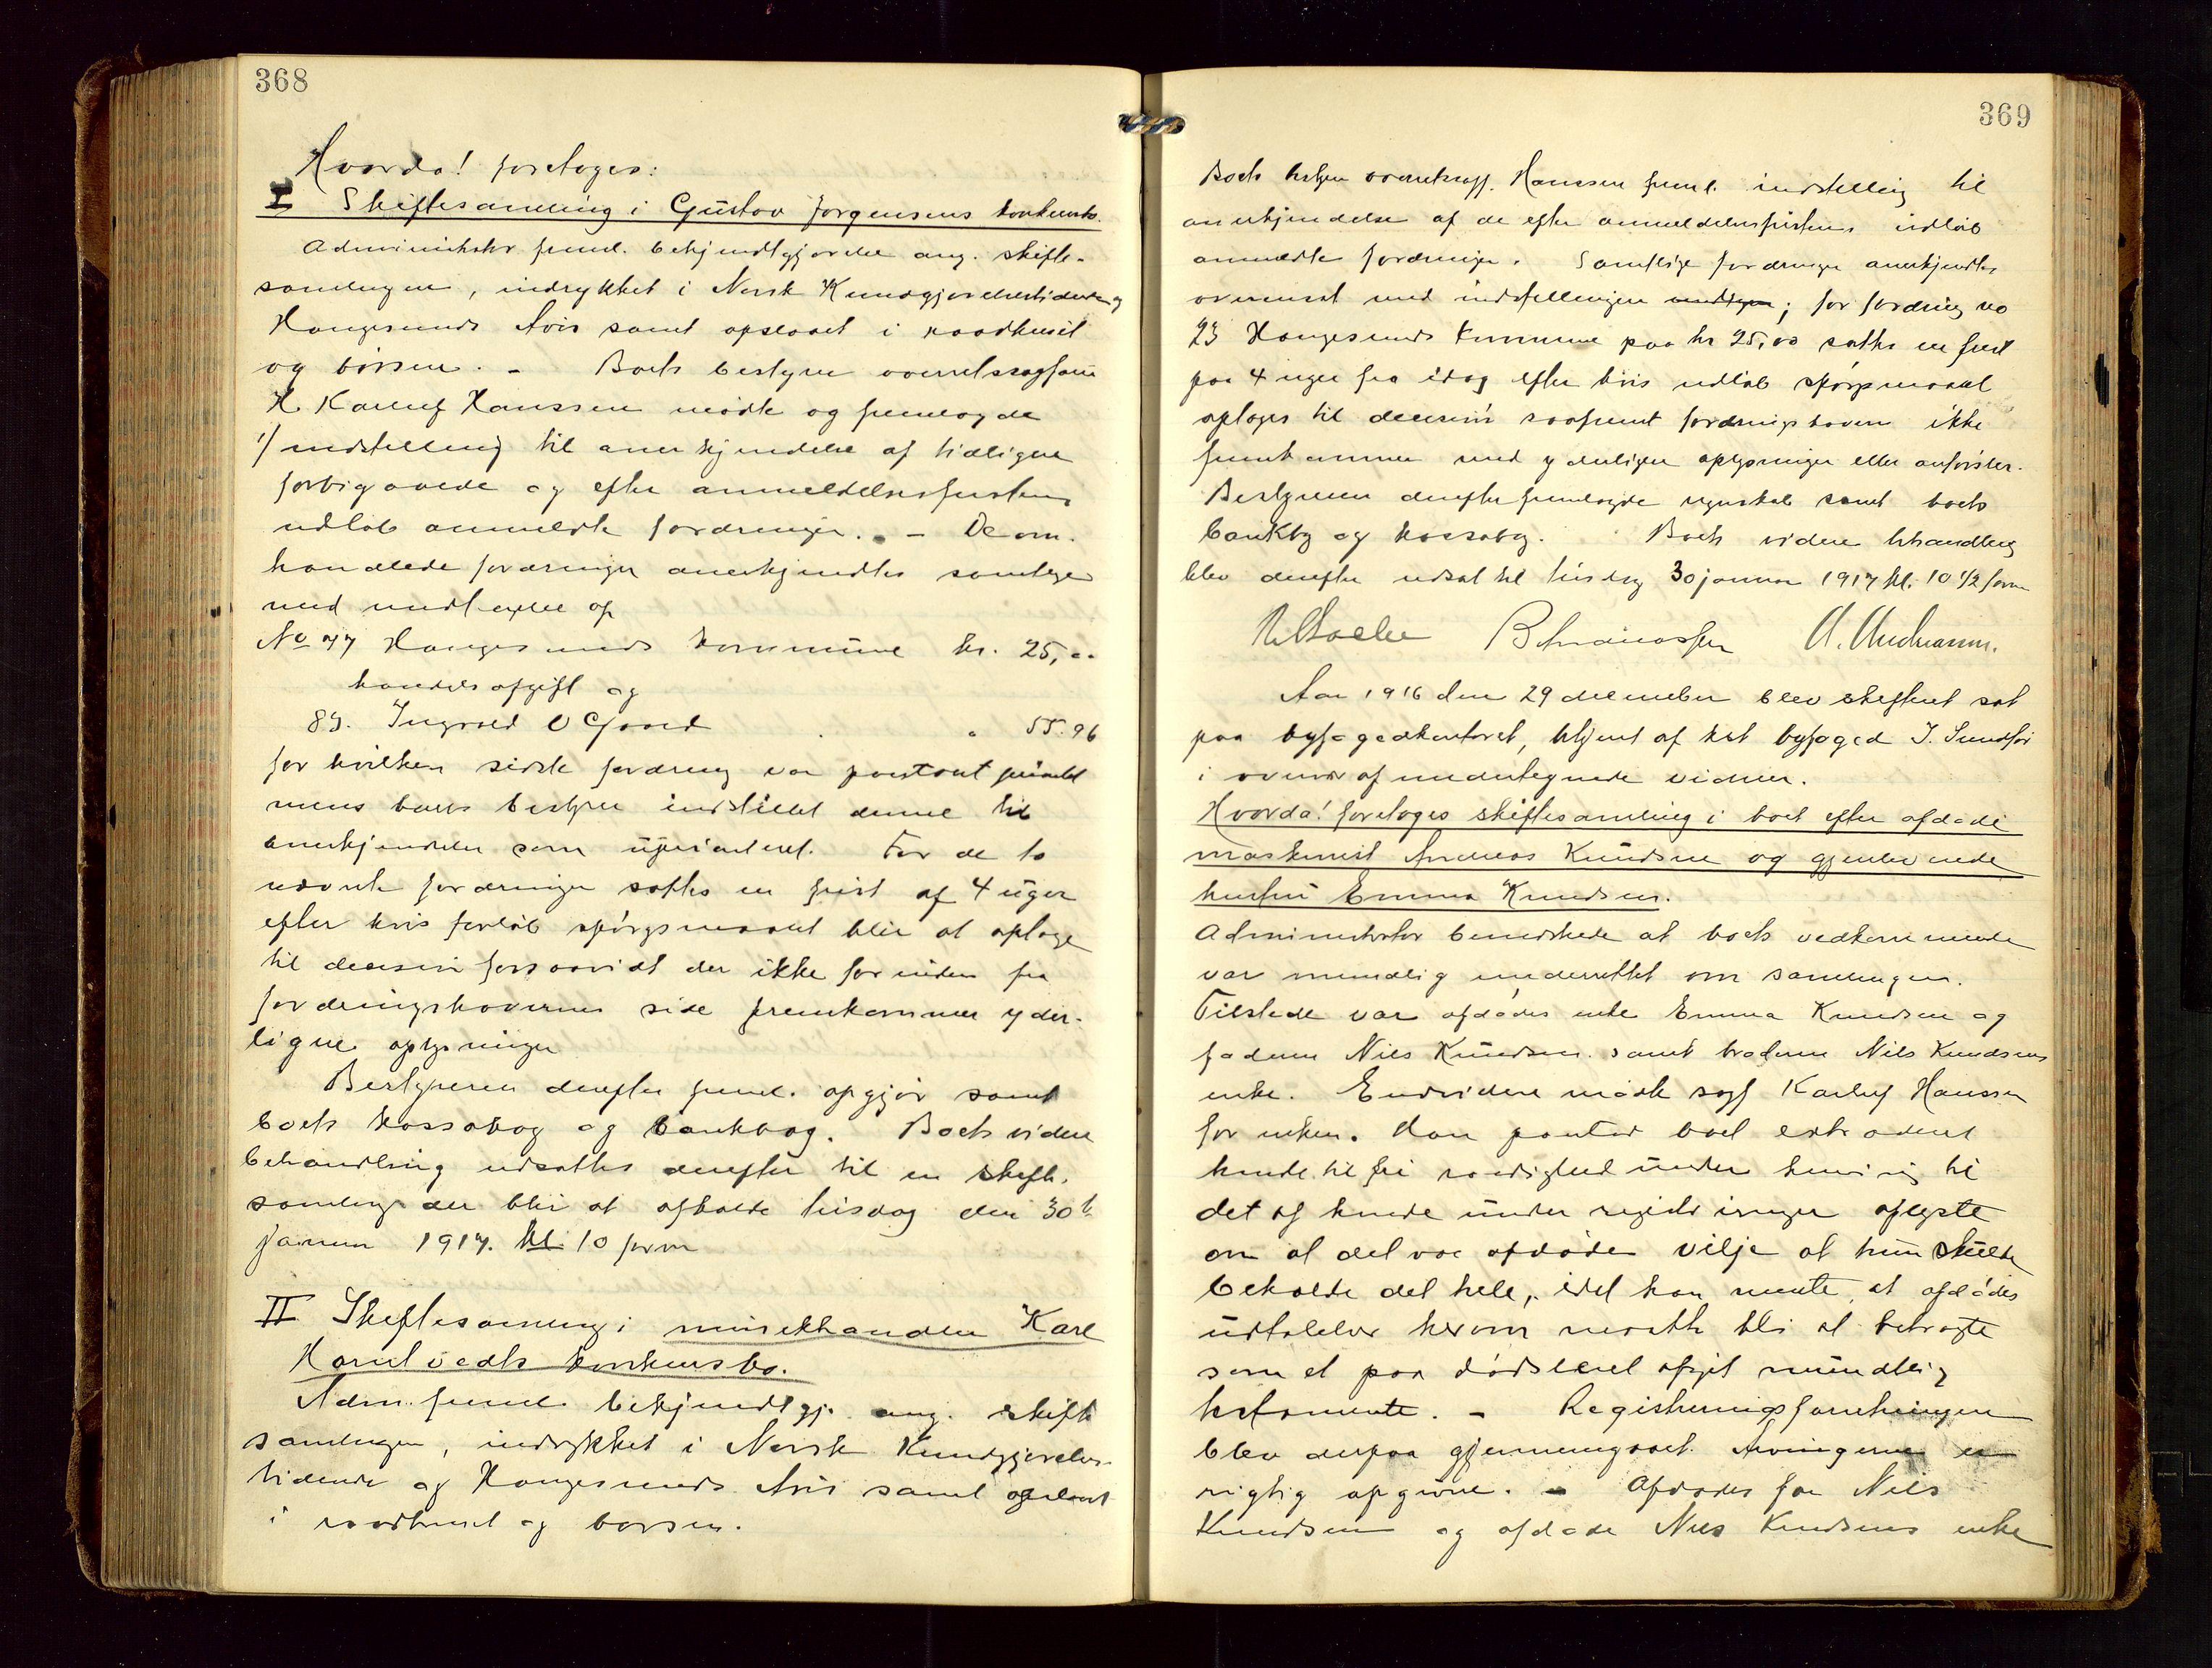 368
Hvorda! foretoges:
I Skiftesamling i Gustav Jørgensens konkursbo.
Administrator freml. bekjendtgjørelse ang. skifte-
samlingen, indrykket i Norsk Kundgjørelsestidende og
Haugesunds Avis samt opslaaet i raadhuset
og børsen. - Boets bestyrer overretssagfører
H. Karluf Hanssen mødte og fremlagde
1/ indstilling til anerkjendelse af tidligere
forbigaaede og efter anmeldelsesfristens
udløb anmeldte fordringer. - De om-
handlede fordringer anerkjendtes samtlige
med undtagelse af
No 77 Haugesunds kommune kr. 25,00
handelsafgift og
83. Ingvald O Gaard " 55.96
for hvilken sidste fordring var paastaat prioritet
mens boets bestyrer indstillet denne til
anerkjendelse som uprioriteret. For de to
nævnte fordringer sattes en frist af 4 uger
efter hvis forløb spørgsmaalet blir at optage
til decision forsaavidt der ikke forinden fra
fordringshavernes side fremkommer yder-
ligere oplysninger
Bestyreren derefter freml. opgjør samt
boets kassabog og bankbog. Boets videre
behandling udsattes derefter til en skifte-
samling der blir at afholde tirsdag den 30te
januar 1917. kl. 10 form
II Skiftesamling i musikhandler Karl
Hamtvedts konkursbo.
Adm. freml. bekjendtgj. ang. skifte
samlingen, indrykket i Norsk Kundgjørelses-
tidende og Haugesunds Avis samt opslaaet
i raadhuset og børsen.
369
Boets bestyrer overretssagf. Hanssen freml. indstilling til
anerkjendelse af de efter anmeldelsesfristens udløb
anmeldte fordringer. Samtlige fordringer anerkjendtes
overensst med indstillingen; for fordring no
23 Haugesunds kommune paa kr 25,00 sattes en frist
paa 4 uger fra idag efter hvis udløb spørgsmaalet
optages til decision saafremt fordringshaveren ikke
fremkommer med yderligere oplysninger eller anførsler.
Bestyreren derefter fremlagde regnskab samt boets
bankbg og kassabg. Boets videre behandling
blev derefter udsat til tirsdag 30 januar 1917 kl. 10 1/2 form
A. Andreassen.
Aar 1916 den 29 december blev skifteret sat
paa byfogedkontoret, betjent af kst byfoged J. Sundfør
i overvær af undertegnede vidner.
Hvorda! foretoges skiftesamling i boet efter afdøde
maskinist Andreas Knudsen og gjenlevende
hustru Emma Knudsen.
Administrator bemerkede at boets vedkommende
var mundlig underrettet om samlingen.
Tilstede var afdødes enke Emma Knudsen og
faderen Nils Knudsen samt broderen Nils Knudsens
enke. Endvidere mødte sagf Karluf Hanssen
for enken. Han paastod boet extraderet
hende til fri raadighed under henvisning til
det af hende under registreringen oplyste
om at det var afdødes vilje at hun skulde
beholde det hele, idet han mente at afdødes
udtalelse herom maatte bli at betragte
som et paa dødsleiet afgit mundtlig
testamente. - Registreringsforretningen
blev derpaa gjennemgaaet. Arvingerne er
rigtig opgivne. - Afdødes far Nils
Knudsen og afdøde Nils Knudsens enke